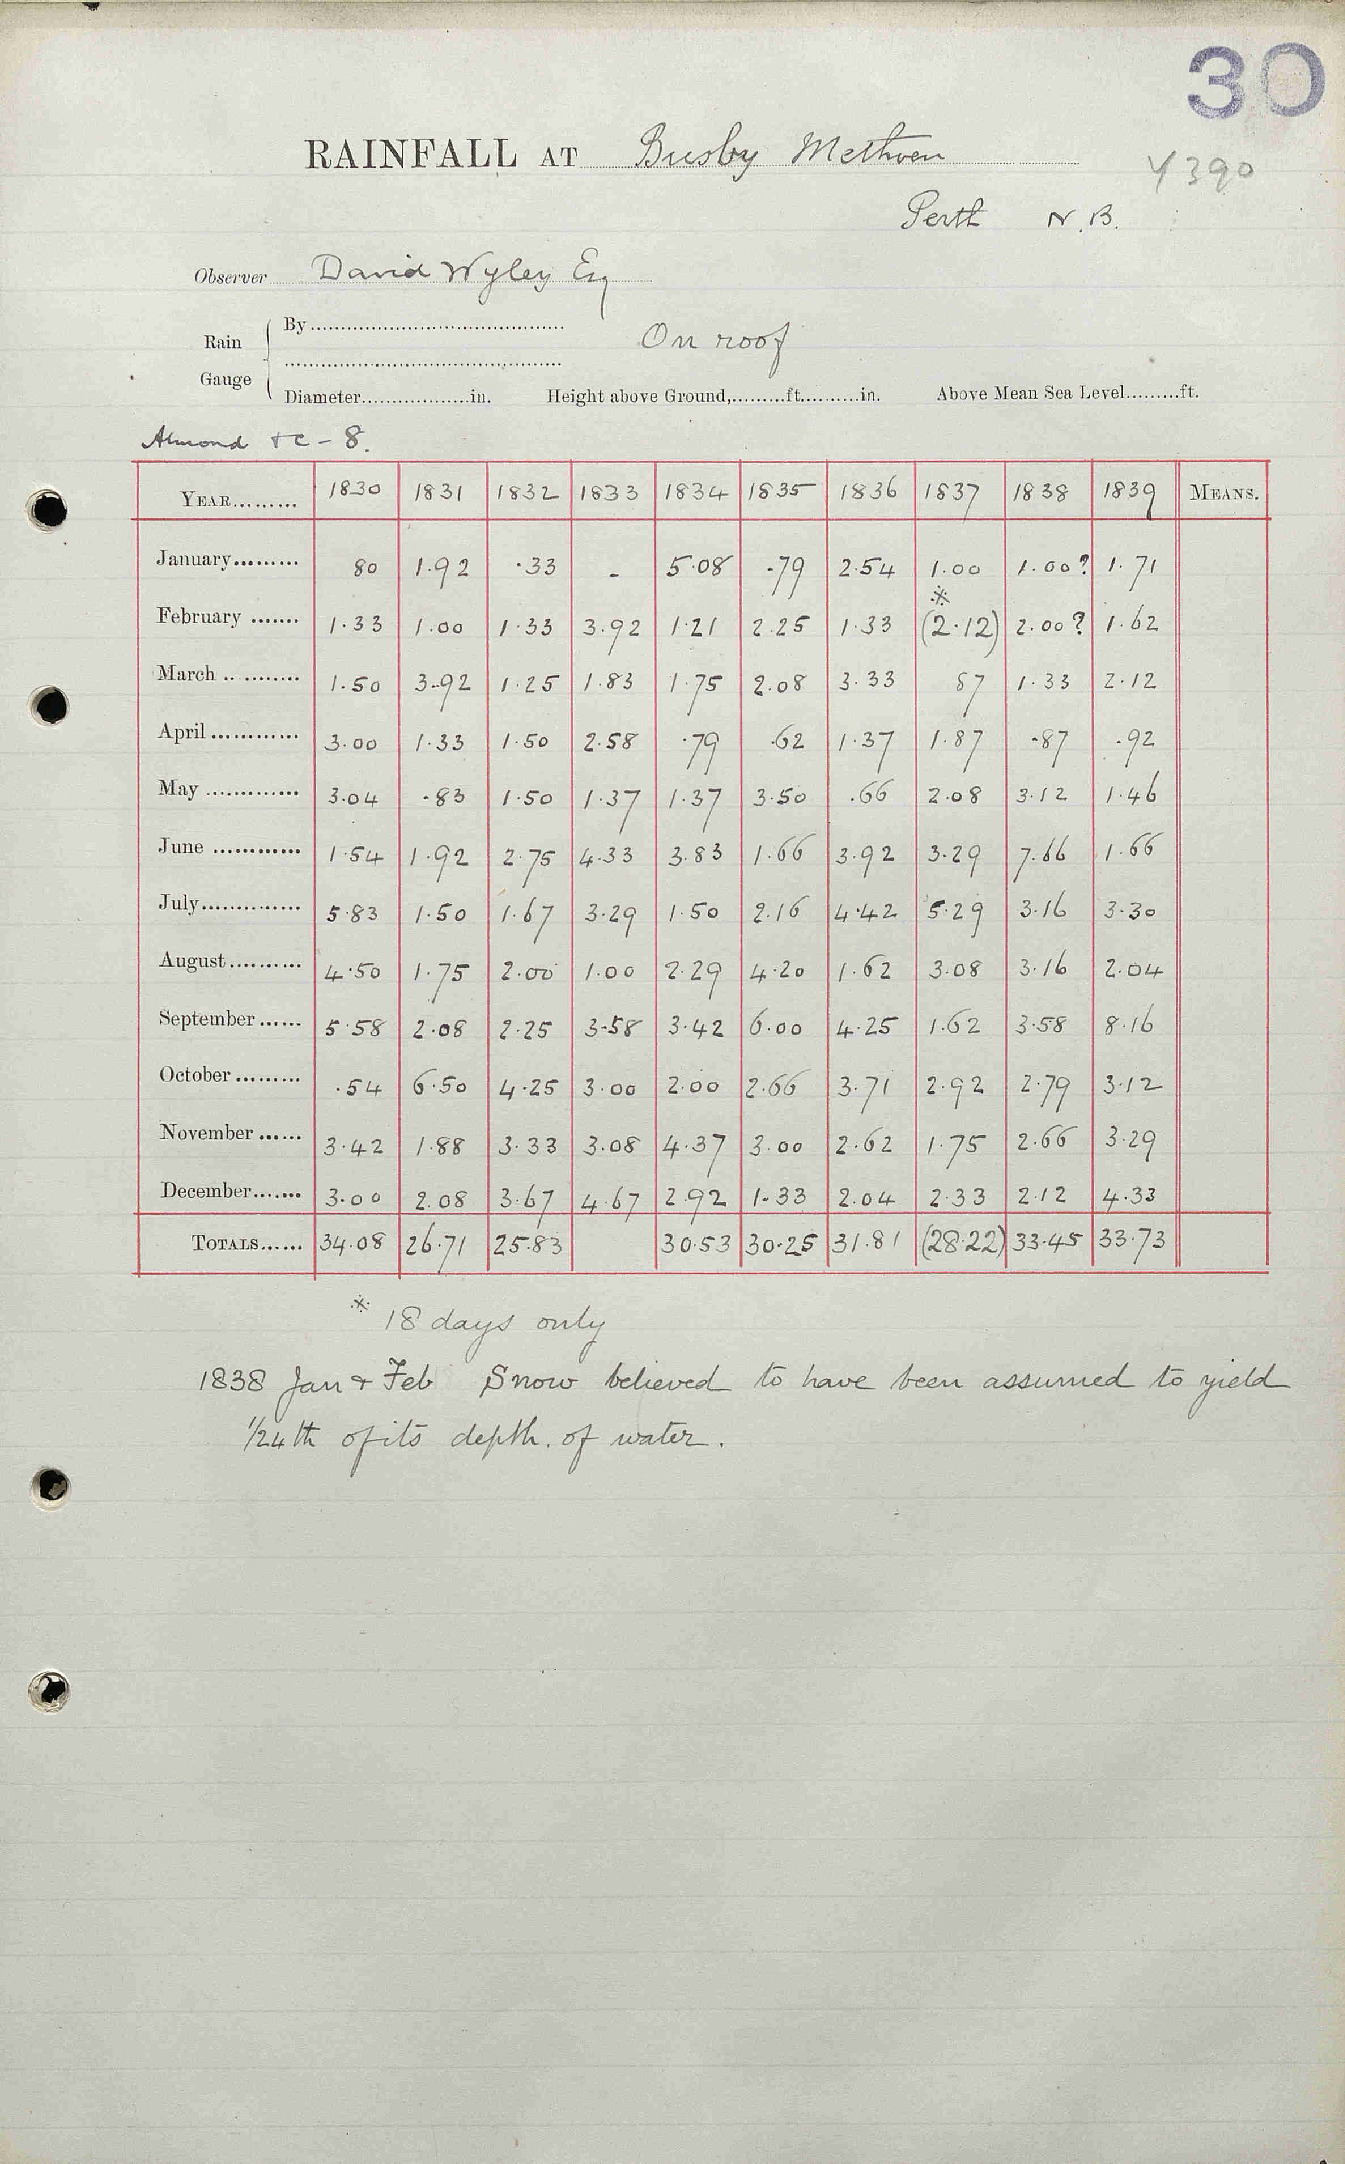 30
RAINFALL AT Busby Methven
Y390
Perth N.B.
Observer David Wyley Esq
Rain Gauge By
On roof
Diameter in. Height above Ground, ft. in. Above Mean Sea Level ft.
Almond &c - 8.
YEAR 1830 1831 1832 1833 1834 1835 1836 1837 1838 1839 MEANS.
January 80 1.92 .33 - 5.08 .79 2.54 1.00 1.00? 1.71
*
February 1.33 1.00 1.33 3.92 1.21 2.25 1.33 (2.12) 2.00? 1.62
March 1.50 3.92 1.25 1.83 1.75 2.08 3.33 87 1.33 2.12
April 3.00 1.33 1.50 2.58 .79 .62 1.37 1.87 .87 .92
May 3.04 .83 1.50 1.37 1.37 3.50 .66 2.08 3.12 1.46
June 1.54 1.92 2.75 4.33 3.83 1.66 3.92 3.29 7.66 1.66
July 5.83 1.50 1.67 3.29 1.50 2.16 4.42 5.29 3.16 3.30
August 4.50 1.75 2.00 1.00 2.29 4.20 1.62 3.08 3.16 2.04
September 5.58 2.08 2.25 3.58 3.42 6.00 4.25 1.62 3.58 8.16
October .54 6.50 4.25 3.00 2.00 2.66 3.71 2.92 2.79 3.12
November 3.42 1.88 3.33 3.08 4.37 3.00 2.62 1.75 2.66 3.29
December 3.00 2.08 3.67 4.67 2.92 1.33 2.04 2.33 2.12 4.33
TOTALS 34.08 26.71 25.83 30.53 30.25 31.81 (28.22) 33.45 33.73
* 18 days only
1838 Jan & Feb Snow believed to have been assumed to yield
1/24th of its depth. of water.